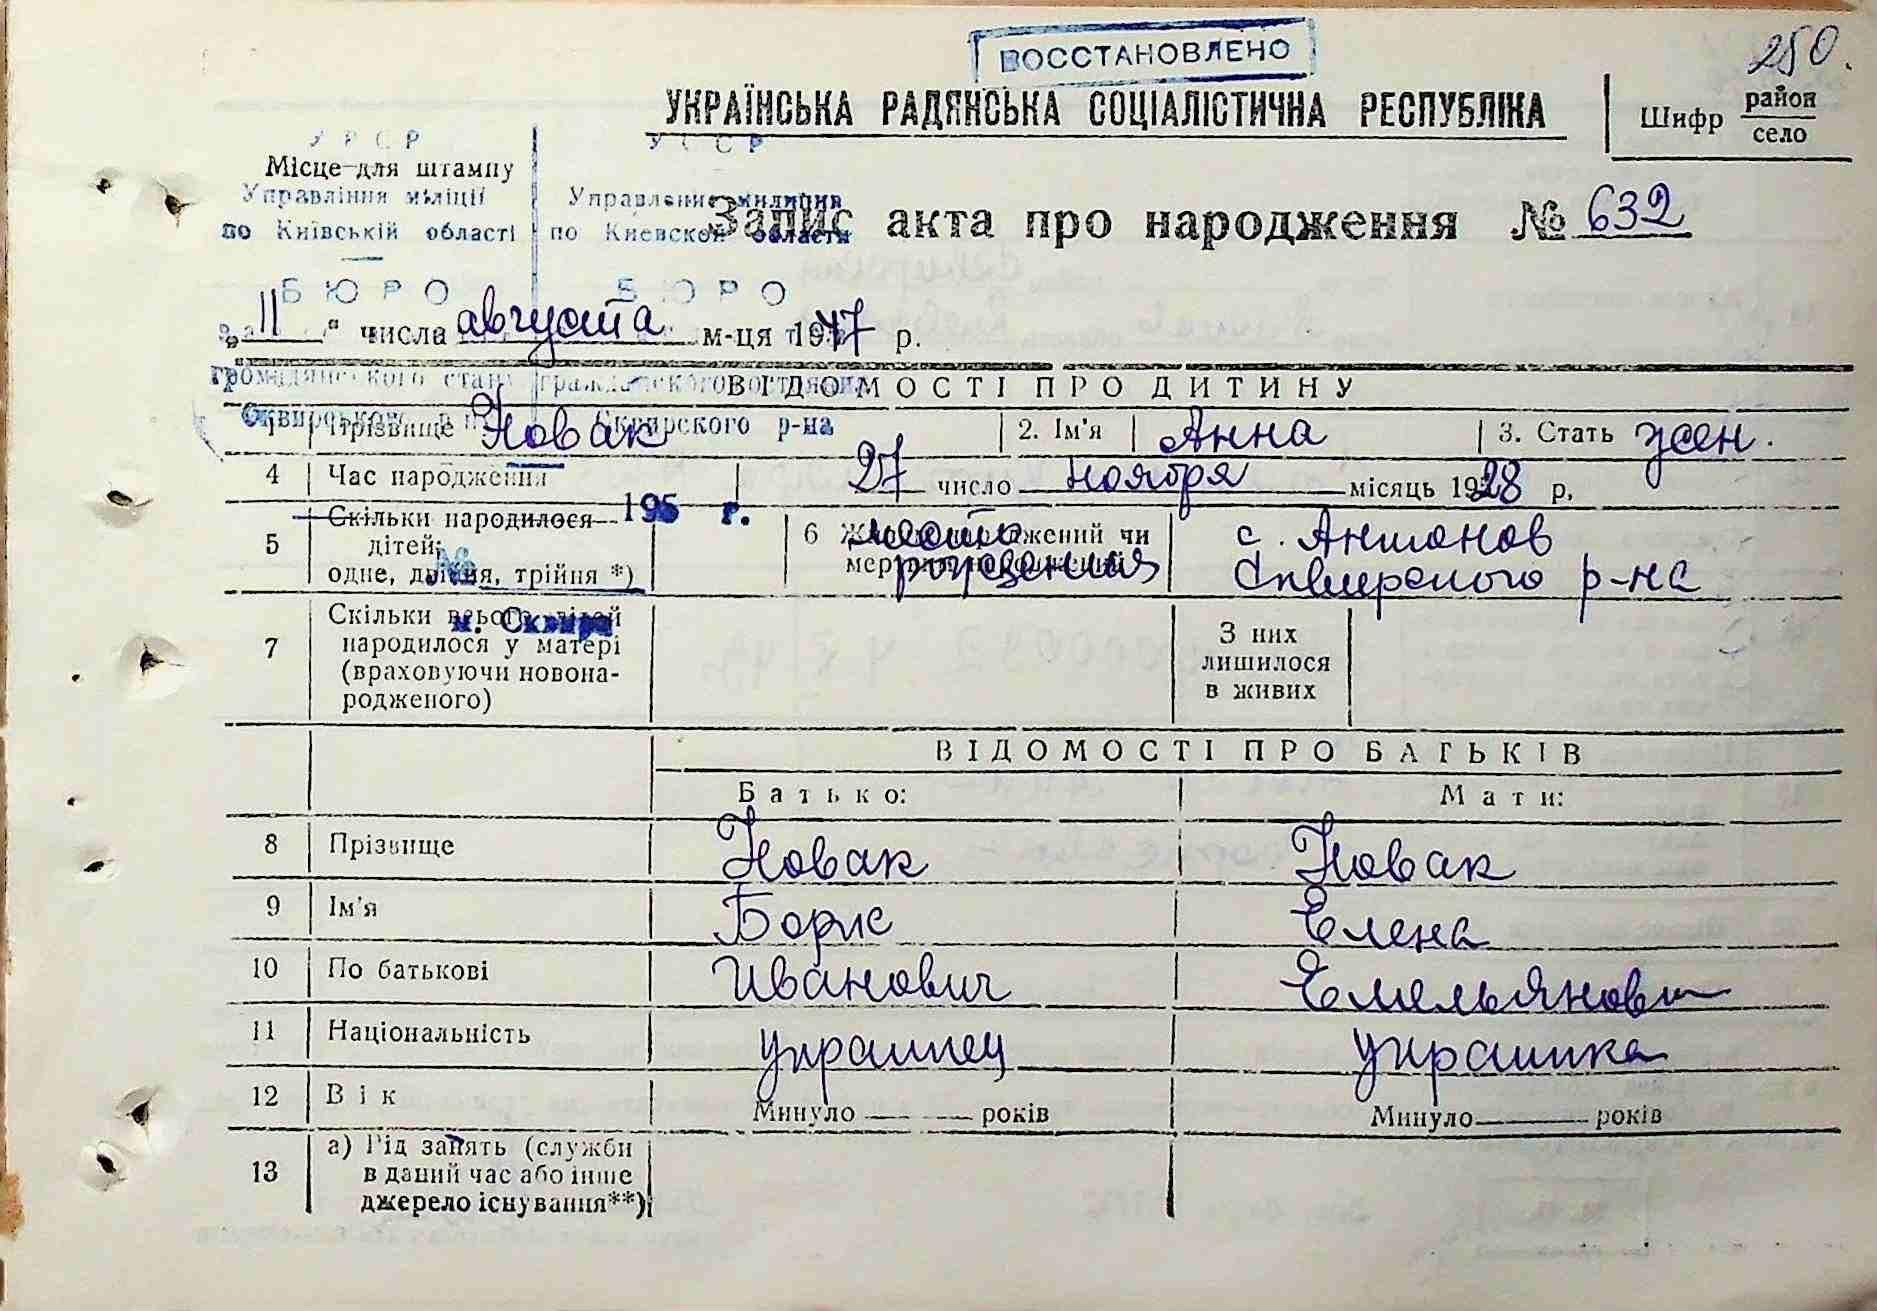 250.
ВОССТАНОВЛЕНО
УКРАЇНСЬКА РАДЯНСЬКА СОЦІАЛІСТИЧНА РЕСПУБЛІКА
Шифр район
село
УРСР УССР
Місце для штампу
Управління міліції Управление милиции
по Київській області по Киевской области
Запис акта про народження № 632
БЮРО БЮРО
„11" числа августа м-ця 1977 р.
громадянського стану гражданского состояния
ВІДОМОСТІ ПРО ДИТИНУ
Сквирського р-ну Сквирского р-на
1 Прізвище Новак 2. Ім'я Анна 3. Стать жен.
4 Час народження 27 число ноября місяць 1928 р.
195 г.
5 Скільки народилося дітей: одне, двійня, трійня *)
№
6 Живонароджений чи мертвонароджений
место рождения
с. Антонов
Сквирского р-на
м. Сквира
7 Скільки всього дітей
народилося у матері
(враховуючи новона-
родженого)
З них
лишилося
в живих
ВІДОМОСТІ ПРО БАТЬКІВ
Батько: Мати:
8 Прізвище Новак Новак
9 Ім'я Борис Елена
10 По батькові Иванович Емельяновн
11 Національність украинец украинка
12 Вік Минуло років Минуло років
13 а) Рід занять (служби
в даний час або інше
джерело існування**)